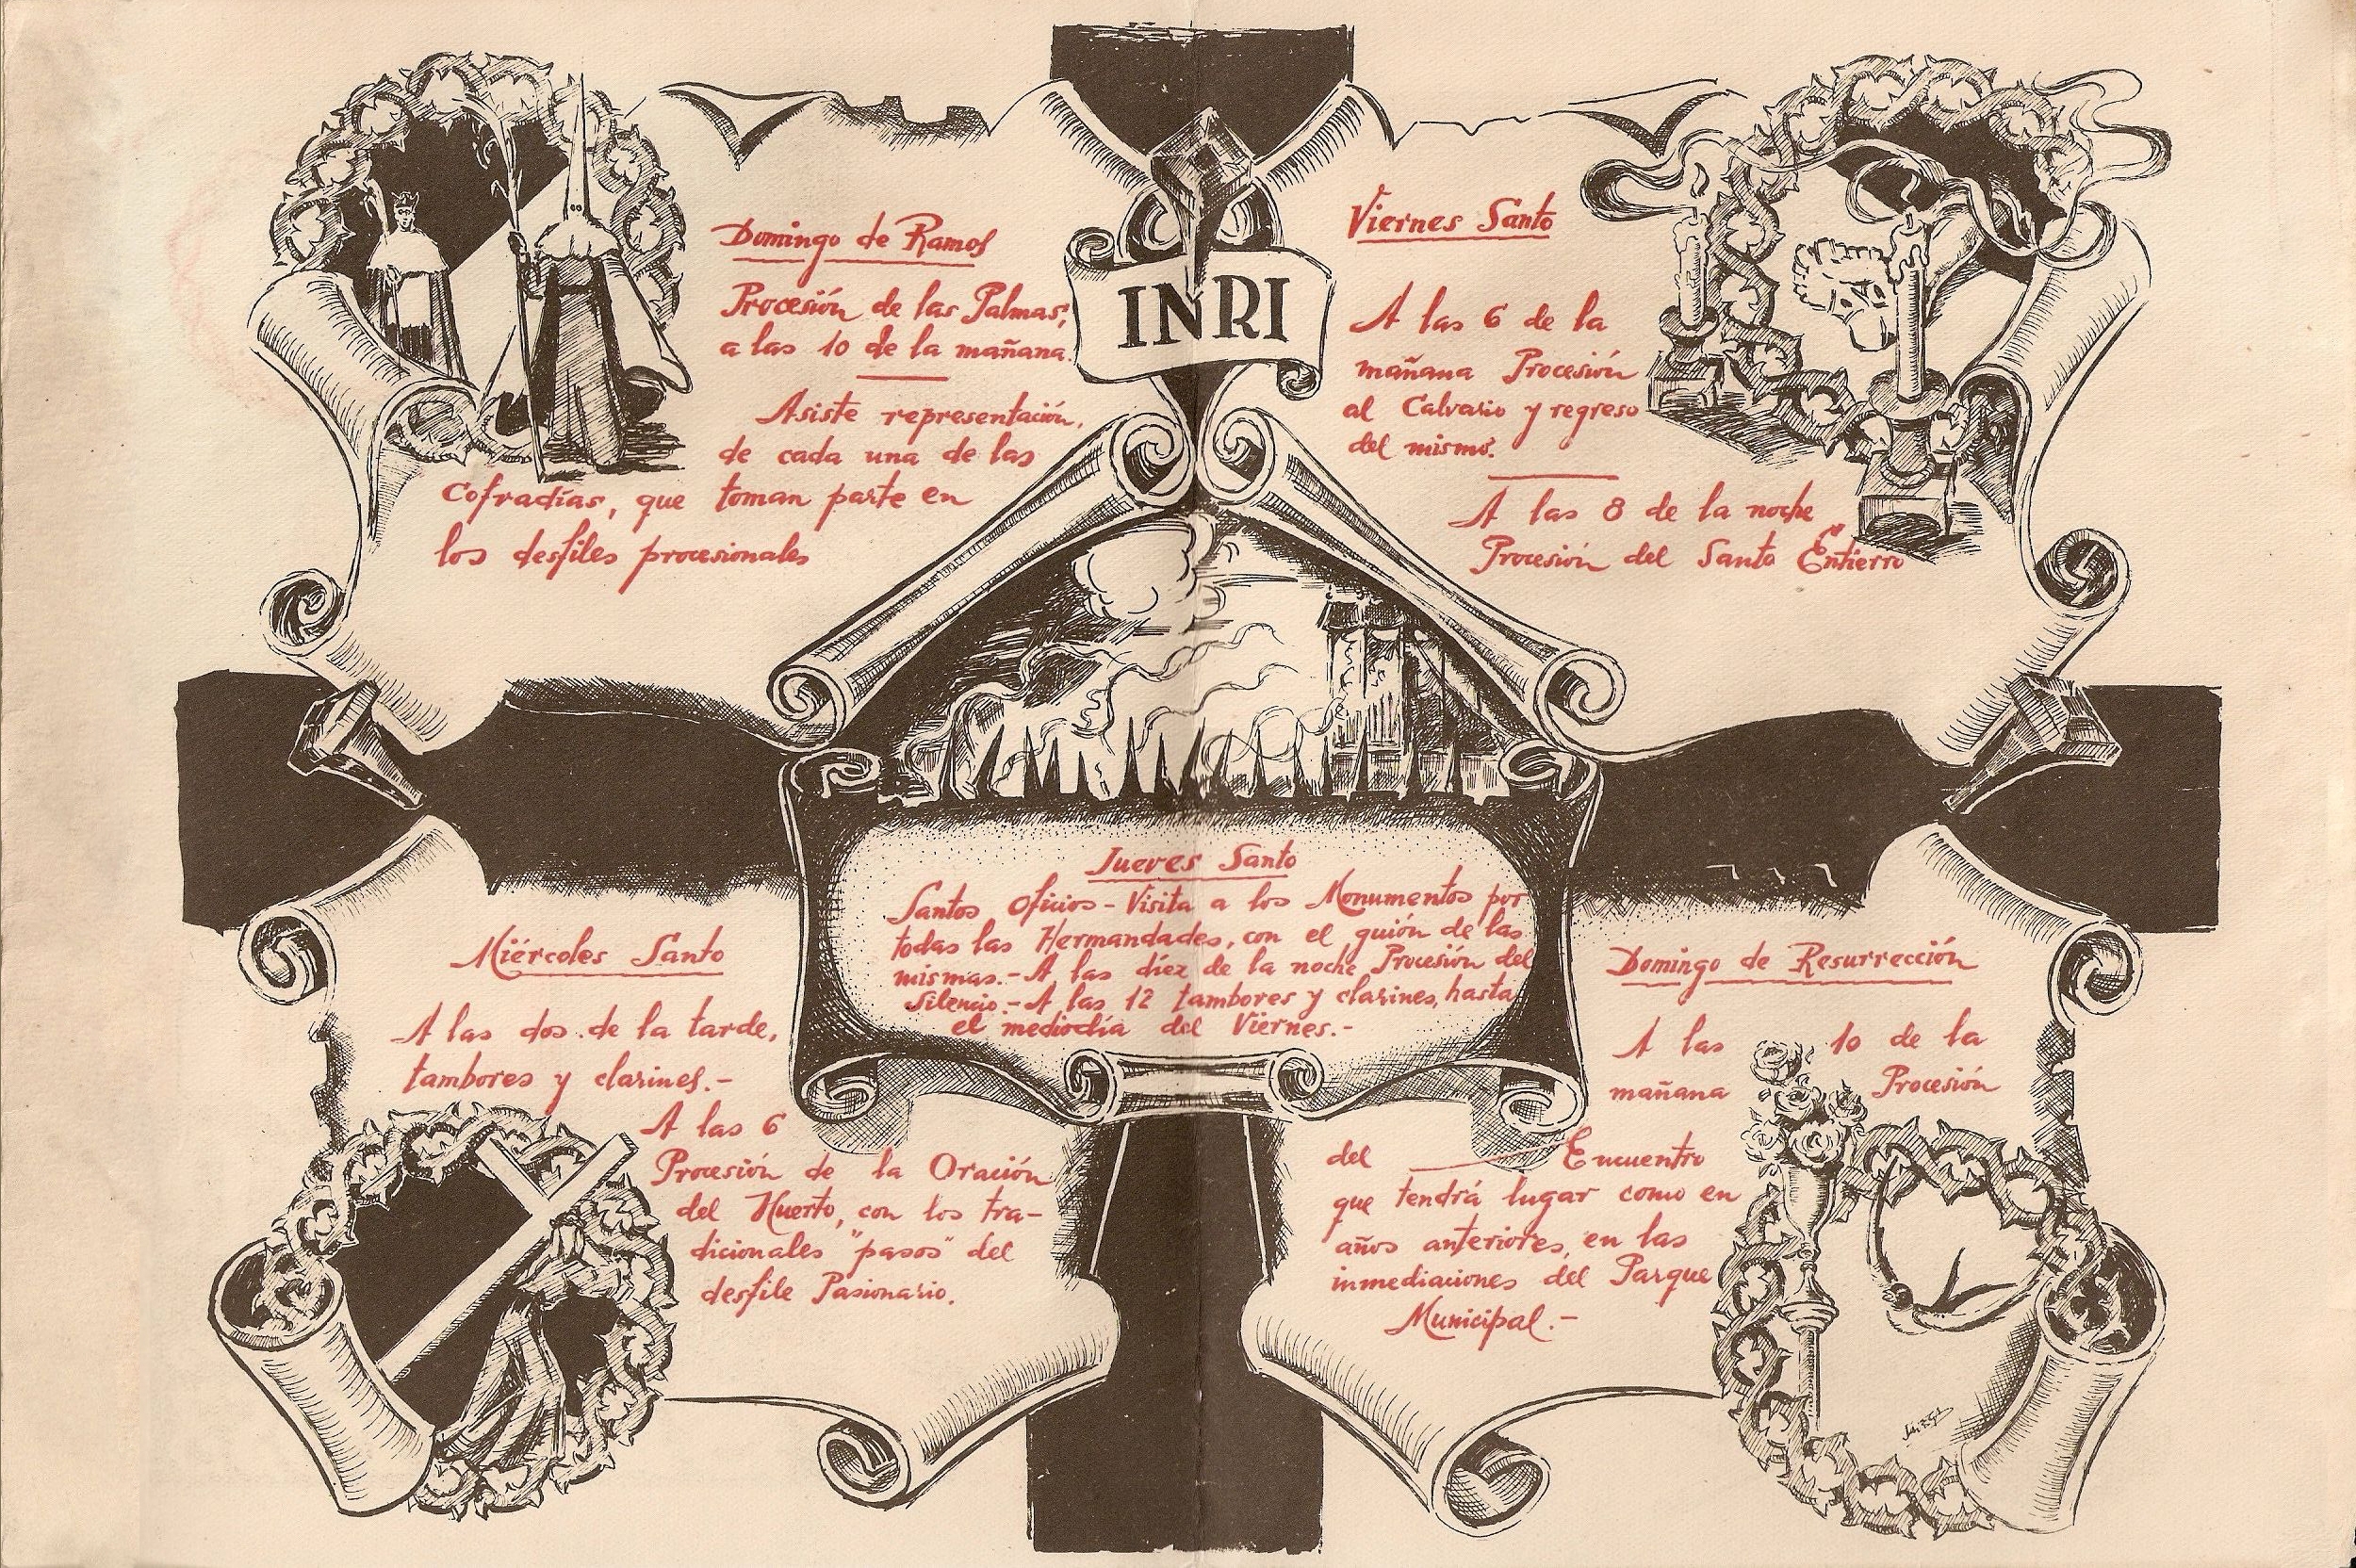 Domingo de Ramos
Procesión de las Palmas,
a las 10 de la mañana.
Asiste representación,
de cada una de las
Cofradías, que toman parte en
los desfiles procesionales
INRI
Viernes Santo
A las 6 de la
mañana Procesión
al Calvario y regreso
del mismo.
A las 8 de la noche
Procesión del Santo Entierro
Jueves Santo
Santos Oficios - Visita a los Monumentos por
todas las Hermandades, con el guión de las
mismas.- A las diez de la noche Procesión del
Silencio.- A las 12 tambores y clarines, hasta
el mediodía del Viernes.-
Miércoles Santo
A las dos de la tarde,
tambores y clarines.-
A las 6
Procesión de la Oración
del Huerto, con los tra-
dicionales "pasos" del
desfile Pasionario.
Domingo de Resurrección
A las 10 de la
mañana Procesión
del Encuentro
que tendrá lugar como en
años anteriores, en las
inmediaciones del Parque
Municipal.-